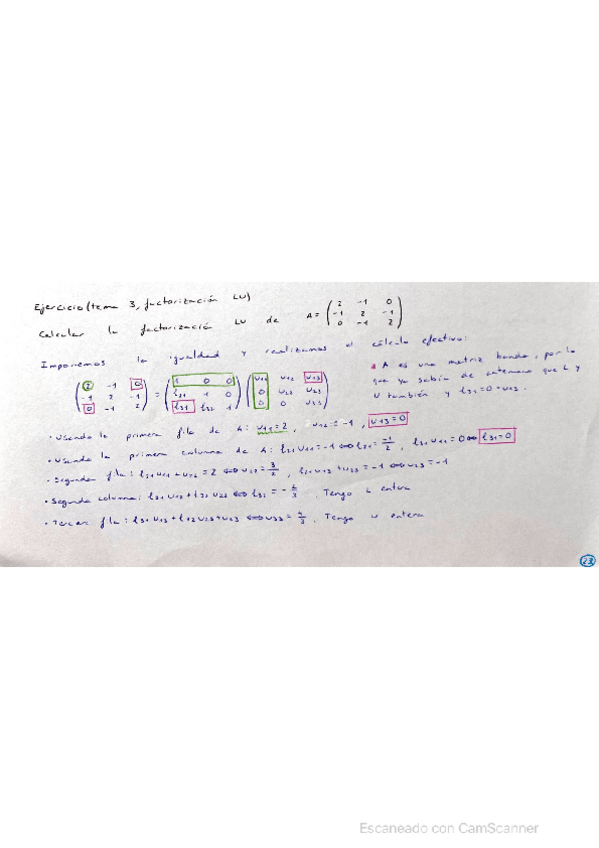 Ejercicio (tema 3, factorización LU)
Calcular la factorización LU de A = ( 2 -1 0 ; -1 2 -1 ; 0 -1 2 )
Imponemos la igualdad y realizamos el cálculo efectivo:
( 2 -1 0 ; -1 2 -1 ; 0 -1 2 ) = ( 1 0 0 ; l21 1 0 ; l31 l32 1 ) ( u11 u12 u13 ; 0 u22 u23 ; 0 0 u33 )
A es una matriz banda, por lo
que ya sabía de antemano que L y
U también y l31 = 0 = u13.
• Usando la primera fila de A: u11 = 2, u12 = -1, u13 = 0
• Usando la primera columna de A: l21 u11 = -1 ⇔ l21 = -1/2, l31 u11 = 0 ⇔ l31 = 0
• Segunda fila: l21 u12 + u22 = 2 ⇔ u22 = 3/2, l21 u13 + u23 = -1 ⇔ u23 = -1
• Segunda columna: l31 u12 + l32 u22 ⇔ l32 = - /3. Tengo L entera
• Tercer fila: l31 u13 + l32 u23 + u33 ⇔ u33 = 4/3. Tengo U entera
23
Escaneado con CamScanner